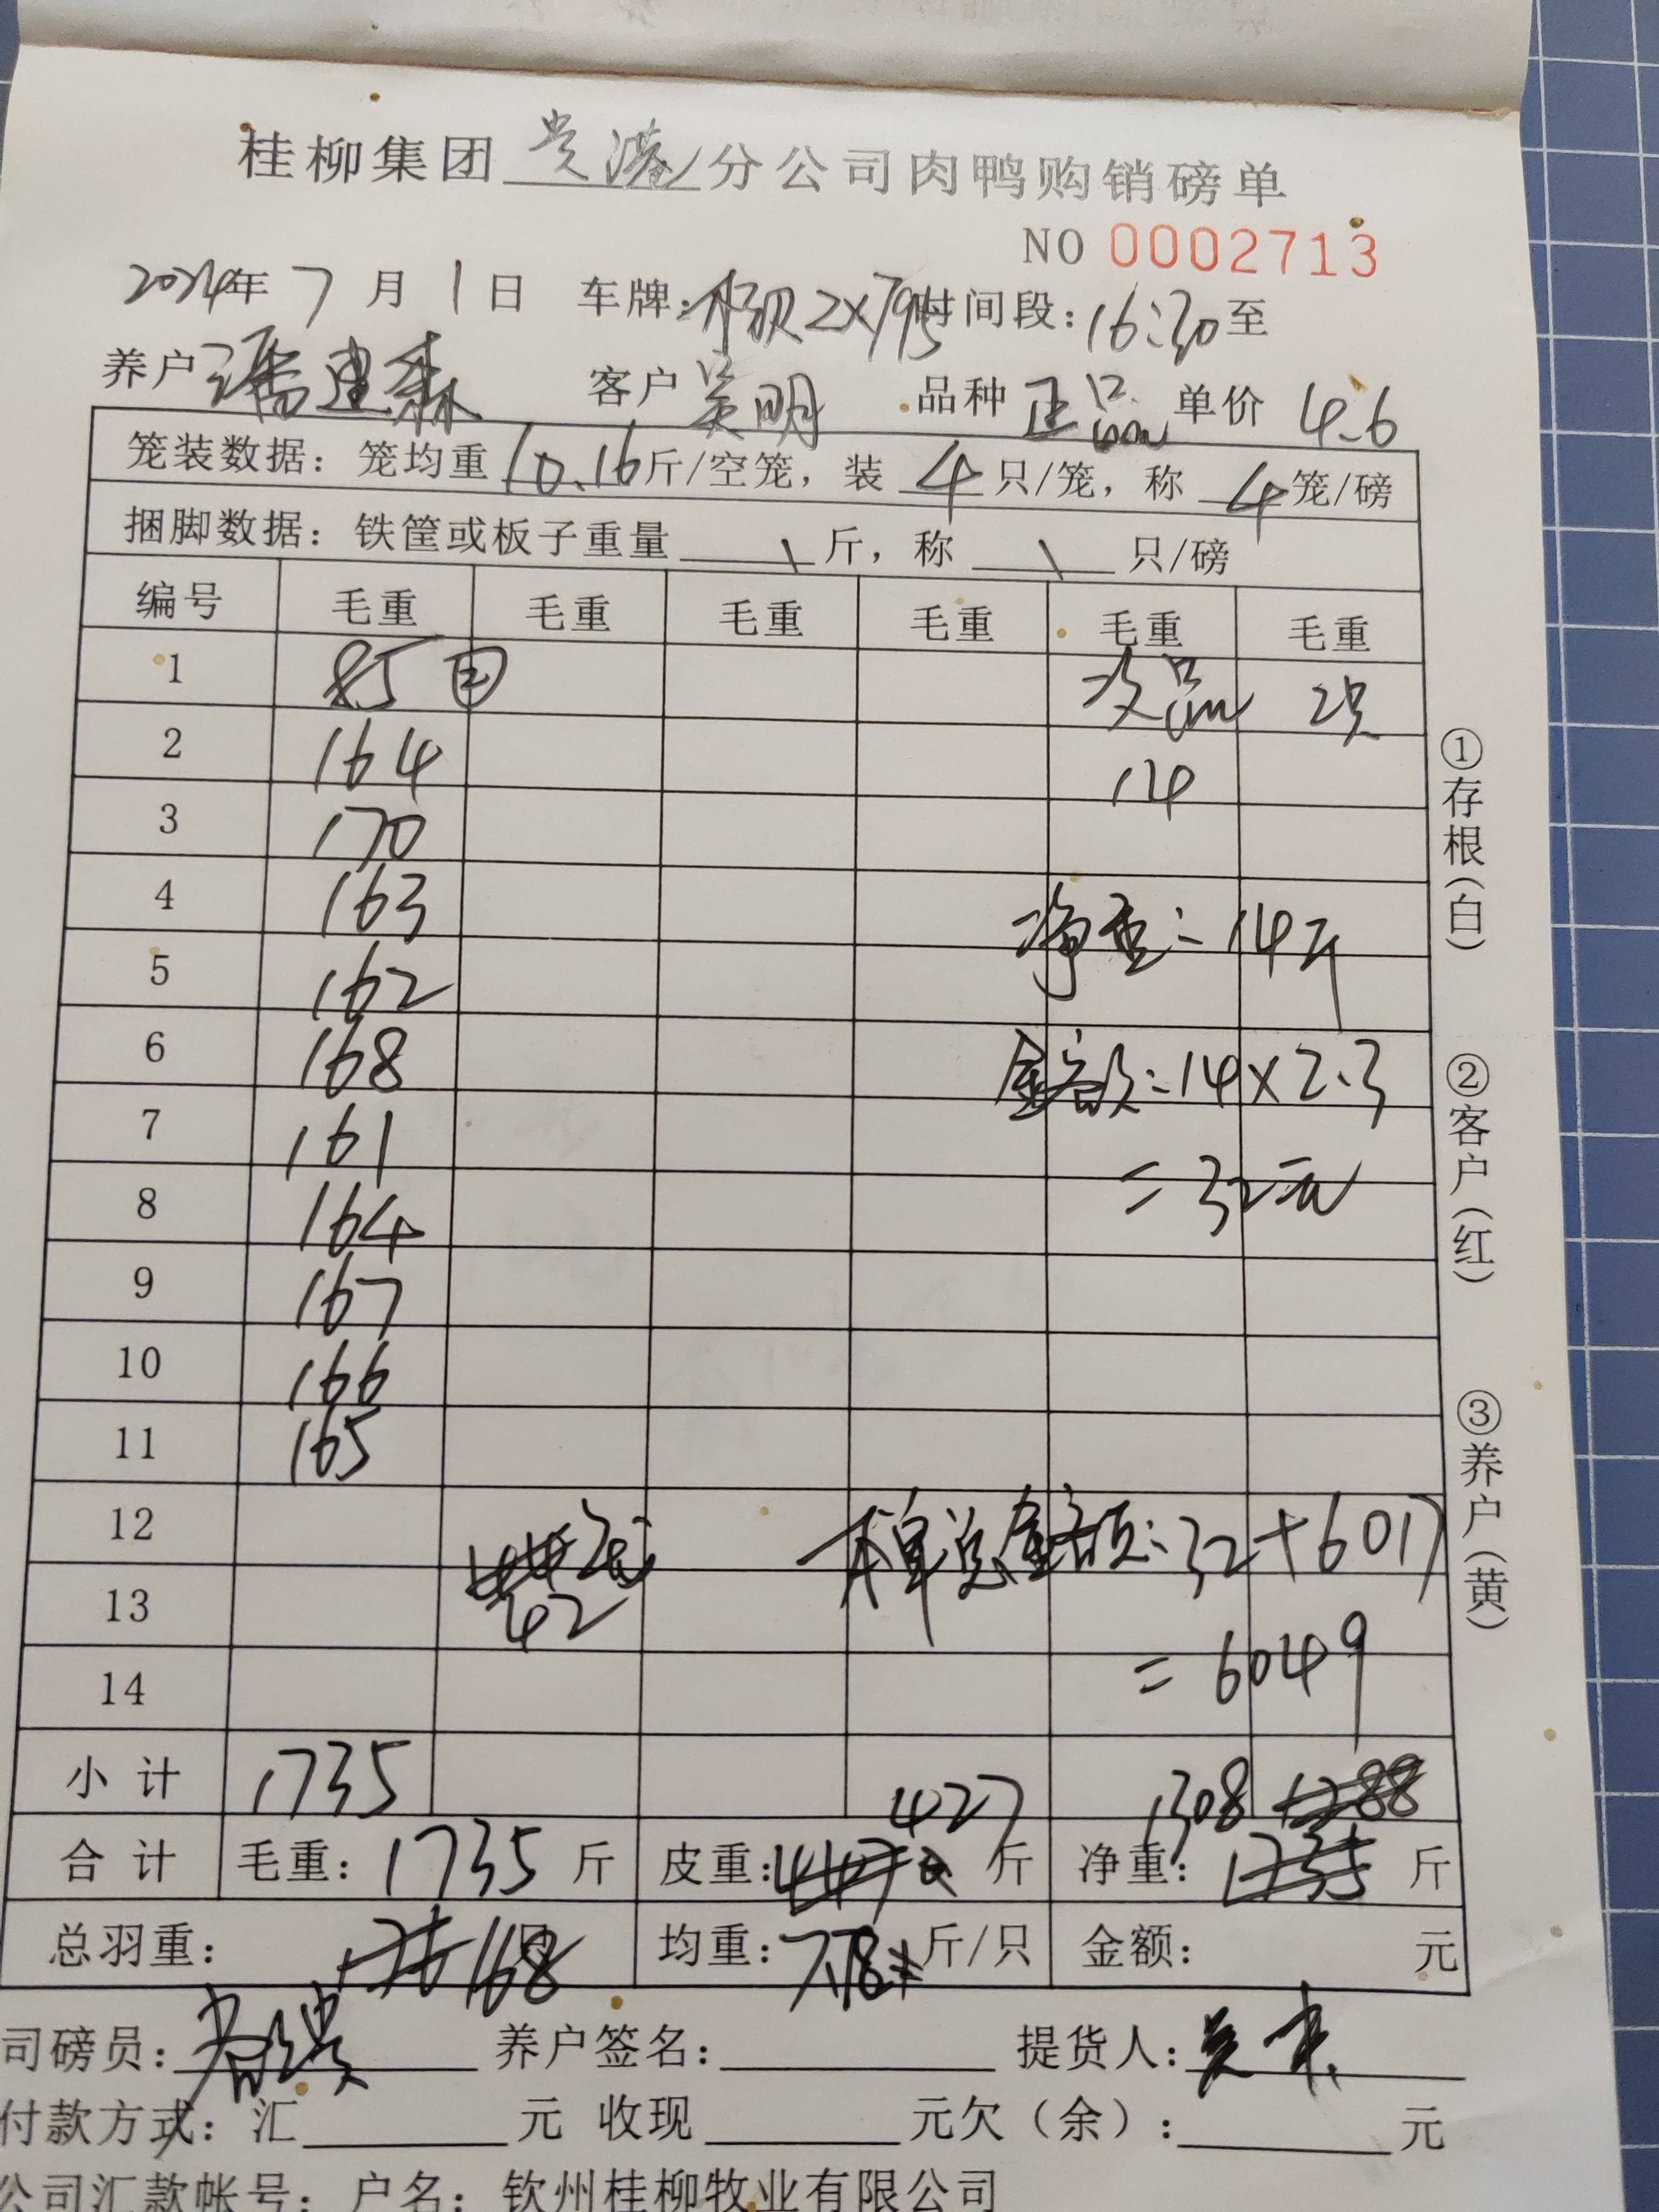 桂柳集团 贵港 分公司肉鸭购销磅单
NO 0002713
2024年 7 月 1 日 车牌: 2X795 时间段: 16:30 至
养户 潘建森 客户 吴明 品种 正品 单价 4.6
笼装数据: 笼均重 10.16 斤/空笼, 装 4 只/笼, 称 4 笼/磅
捆脚数据: 铁筐或板子重量 \ 斤, 称 \ 只/磅
编号 毛重 毛重 毛重 毛重 毛重 毛重
1 85 ② 次品 2只
2 164 14
3 170
4 163 净重: 14斤
5 162
6 168 金额: 14×2.3
7 161
8 164 = 32元
9 167
10 166
11 165
12 本单总金额: 32+6017
13 42
14 = 6049
小计 1735 427 1308
合计 毛重: 1735 斤 皮重: 斤 净重: 斤
总羽重: 168 只 均重: 7.78 斤/只 金额: 元
司磅员: 养户签名: 提货人:
付款方式: 汇 元 收现 元欠(余): 元
公司汇款帐号: 户名: 钦州桂柳牧业有限公司
①存根(白)
②客户(红)
③养户(黄)